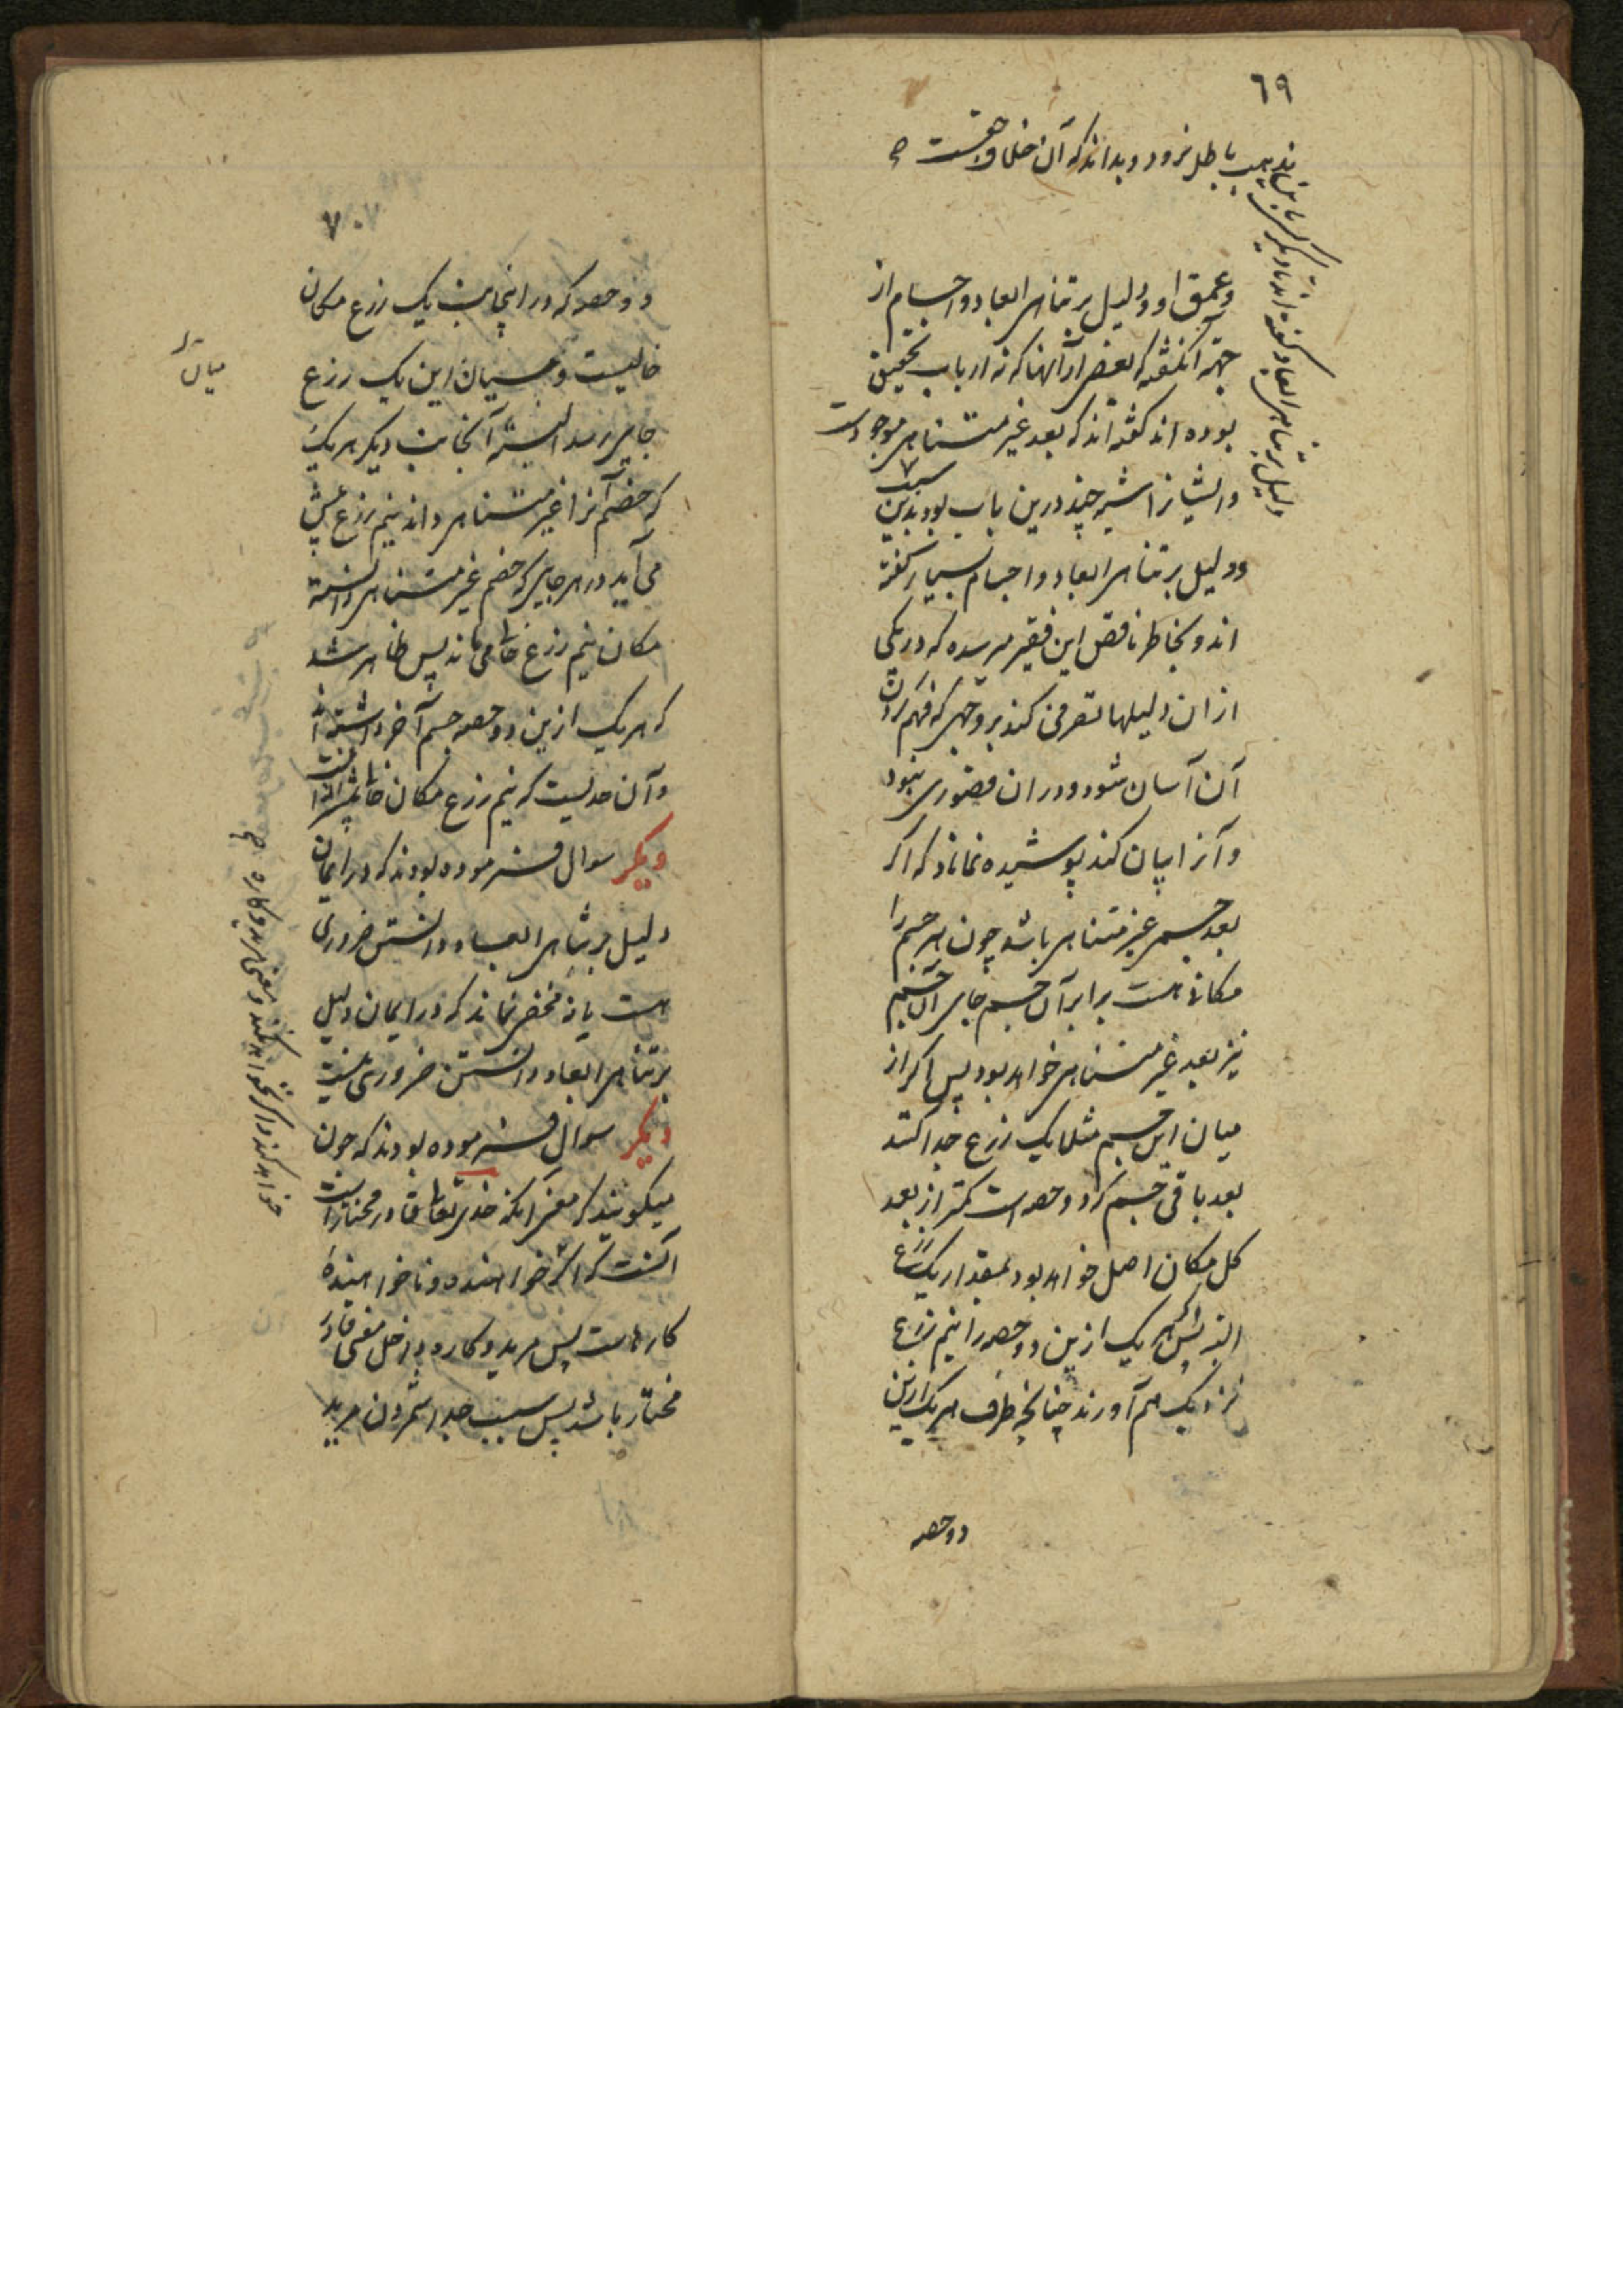 ٦٩
مذهب باطل نرود و بداند که آن خلاف حقست
دلیل بر تناهی ابعاد گفته اند تا دیگر کس باین
وعمق او و دلیل بر تناهی ابعاد و اجسام از
جهة آن گفته که بعضی از آنها که نه ارباب تحقیق
بوده اند گفته اند که بعد غیر متناهی موجودست
و ایشانرا شبه چند درین باب بود بدین سبب
دو لیل بر تناهی ابعاد و اجسام بسیار گفته
اند و بخاطر ناقص این فقیر میرسد که در یکی
ازان دلیلها تصرفی کند بر وجهی که فهم کردن
آن آسان شود و دران قصوری نبود
و آنرا بیان کند پوشیده نماناد که اگر
بعد جسمی غیر متناهی باشد چون هر جسم را
مکانی هست برابر آن جسم جای آن جسم
نیز بعد غیر متناهی خواهد بود پس اگر از
میان این جسم مثلا یک زرع جدا کنند
بعد باقی جسم که دو حصه است کمتر از بعد
کل مکان اصل خواهد بود بمقدار یک زرع
البته پس اگر هر یک ازین دو حصه را نیم زرع
نزدیک هم آورند چنانچه طرف هر یک ازین
دو حصه
٧٠
دو حصه که در اینجانب یک زرع مکان
خالیست و بمیان این یک زرع
جایی رسد البته آنجانب دیگر هر یک
که خصم آنرا غیر متناهی داند نیم زرع پیش
می آید در هر جایی که خصم غیر متناهی دانسته
مکان نیم زرع خالی ماند پس ظاهر شد
که هر یک ازین دو حصه جسم آخر داشته
و آن حدیست که نیم زرع مکان خالی
دیگر سوال فرموده بودند که در ایمان
دلیل بر تناهی ابعاد دانستن ضروری
هست یا نه مخفی نماند که در ایمان دلیل
بر تناهی ابعاد دانستن ضروری نیست
دیگر سوال فرموده بودند که چون
میگویند که معنی آنکه خدای تعالی قادر مختار است
آنست که اگر خواهنده و ناخواهنده
کارهاست پس مرید و کاره داخل معنی قادر
مختار باشد پس سبب جدا شمردن مرید
خواهد کند و اگر نخواهد نکند و معنی مرید و کاره